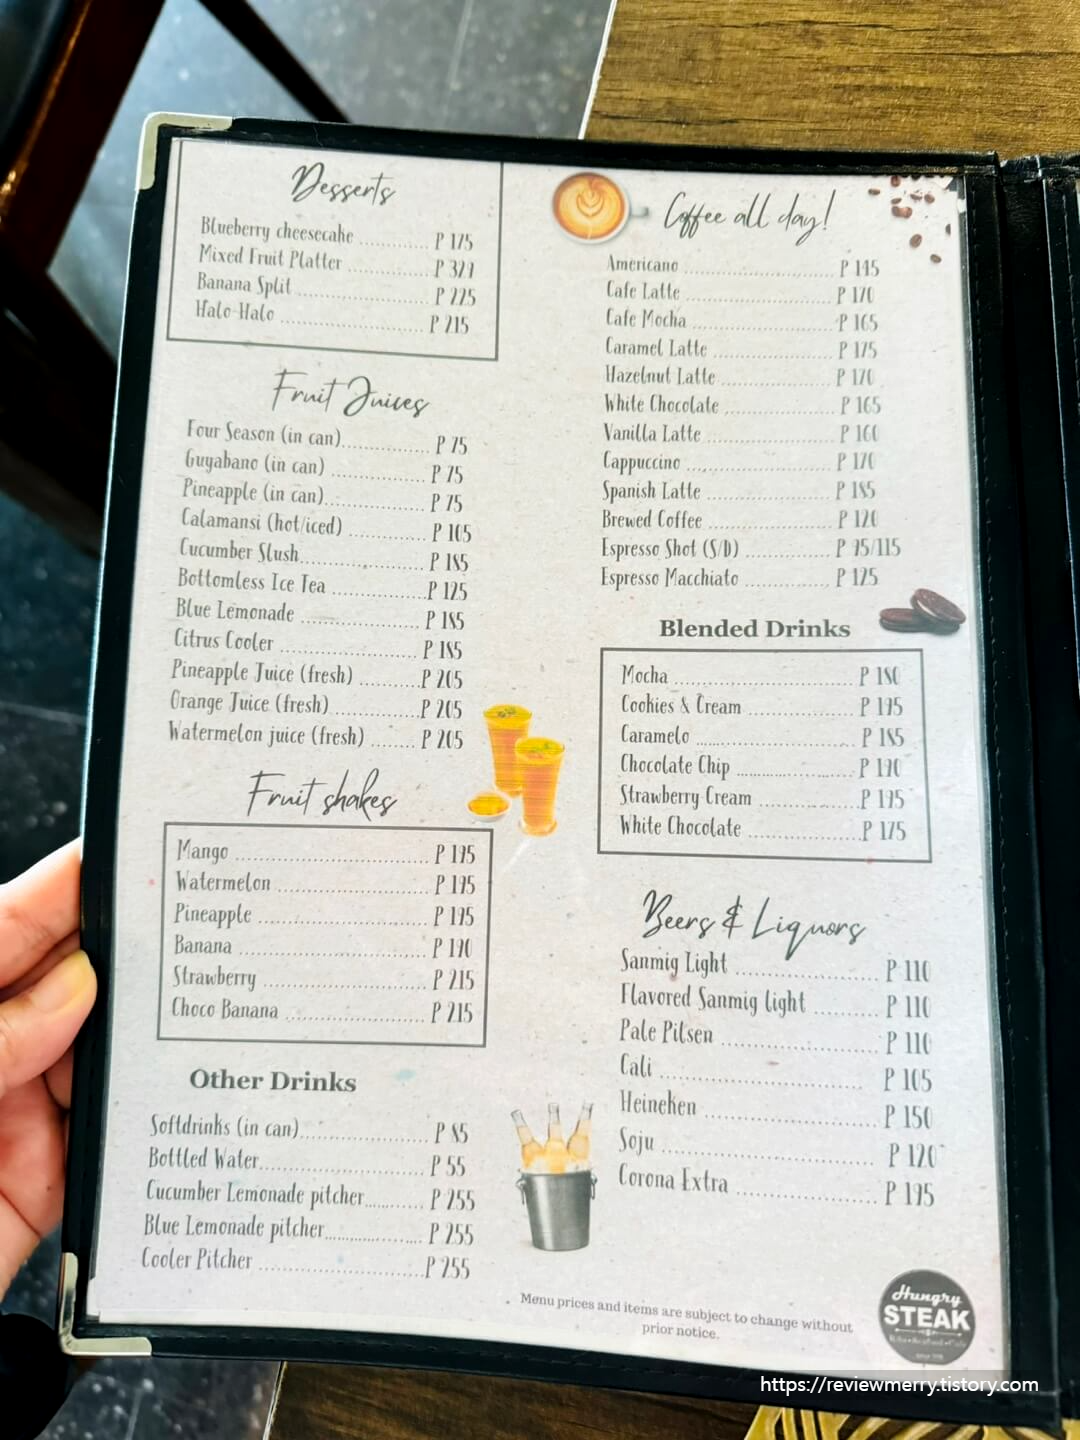 Desserts
Blueberry cheesecake P 175
Mixed Fruit Platter
Banana Split P 225
Halo-Halo P 215
Fruit Juices
Four Season (in can) P 75
Guyabano (in can) P 75
Pineapple (in can) P 75
Calamansi (hot/iced) P 105
Cucumber Slush P 185
Bottomless Ice Tea P 125
Blue Lemonade P 185
Citrus Cooler P 185
Pineapple Juice (fresh) P 205
Orange Juice (fresh) P 205
Watermelon juice (fresh) P 205
Fruit shakes
Mango P 195
Watermelon P 195
Pineapple P 195
Banana P 190
Strawberry P 215
Choco Banana P 215
Other Drinks
Softdrinks (in can) P 85
Bottled Water P 55
Cucumber Lemonade pitcher P 255
Blue Lemonade pitcher P 255
Cooler Pitcher P 255
Coffee all day!
Americano P 145
Cafe Latte P 170
Cafe Mocha P 165
Caramel Latte P 175
Hazelnut Latte P 170
White Chocolate P 165
Vanilla Latte P 160
Cappuccino P 170
Spanish Latte P 185
Brewed Coffee P 120
Espresso Shot (S/D) P 95/115
Espresso Macchiato P 125
Blended Drinks
Mocha P 180
Cookies & Cream P 195
Caramelo P 185
Chocolate Chip P 190
Strawberry Cream P 195
White Chocolate P 175
Beers & Liquors
Sanmig Light P 110
Flavored Sanmig light P 110
Pale Pilsen P 110
Cali P 105
Heineken P 150
Soju P 120
Corona Extra P 195
Menu prices and items are subject to change without
prior notice.
Hungry
STEAK
https://reviewmerry.tistory.com